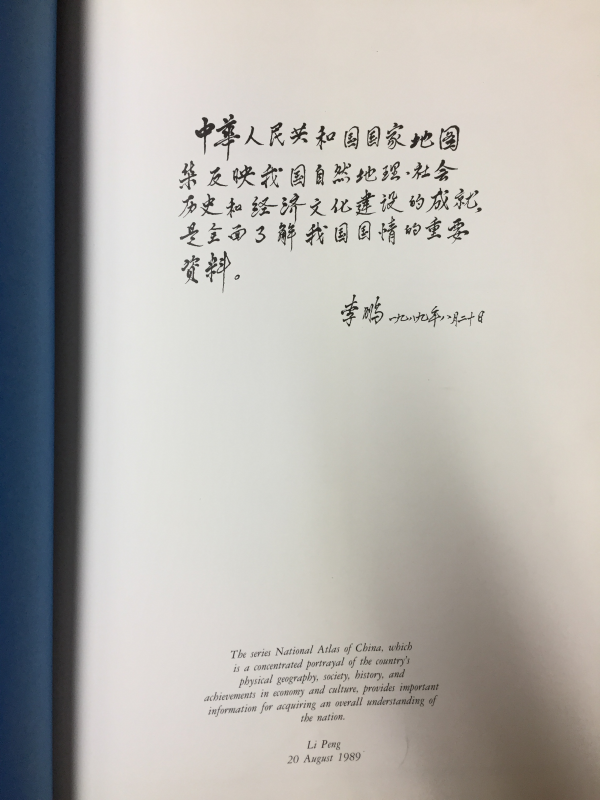 中華人民共和国国家地图
集反映我国自然地理·社会
历史和经济文化建设的成就,
是全面了解我国国情的重要
资料。
李鹏 一九八九年八月二十日
The series National Atlas of China, which
is a concentrated portrayal of the country's
physical geography, society, history, and
achievements in economy and culture, provides important
information for acquiring an overall understanding of
the nation.
Li Peng
20 August 1989